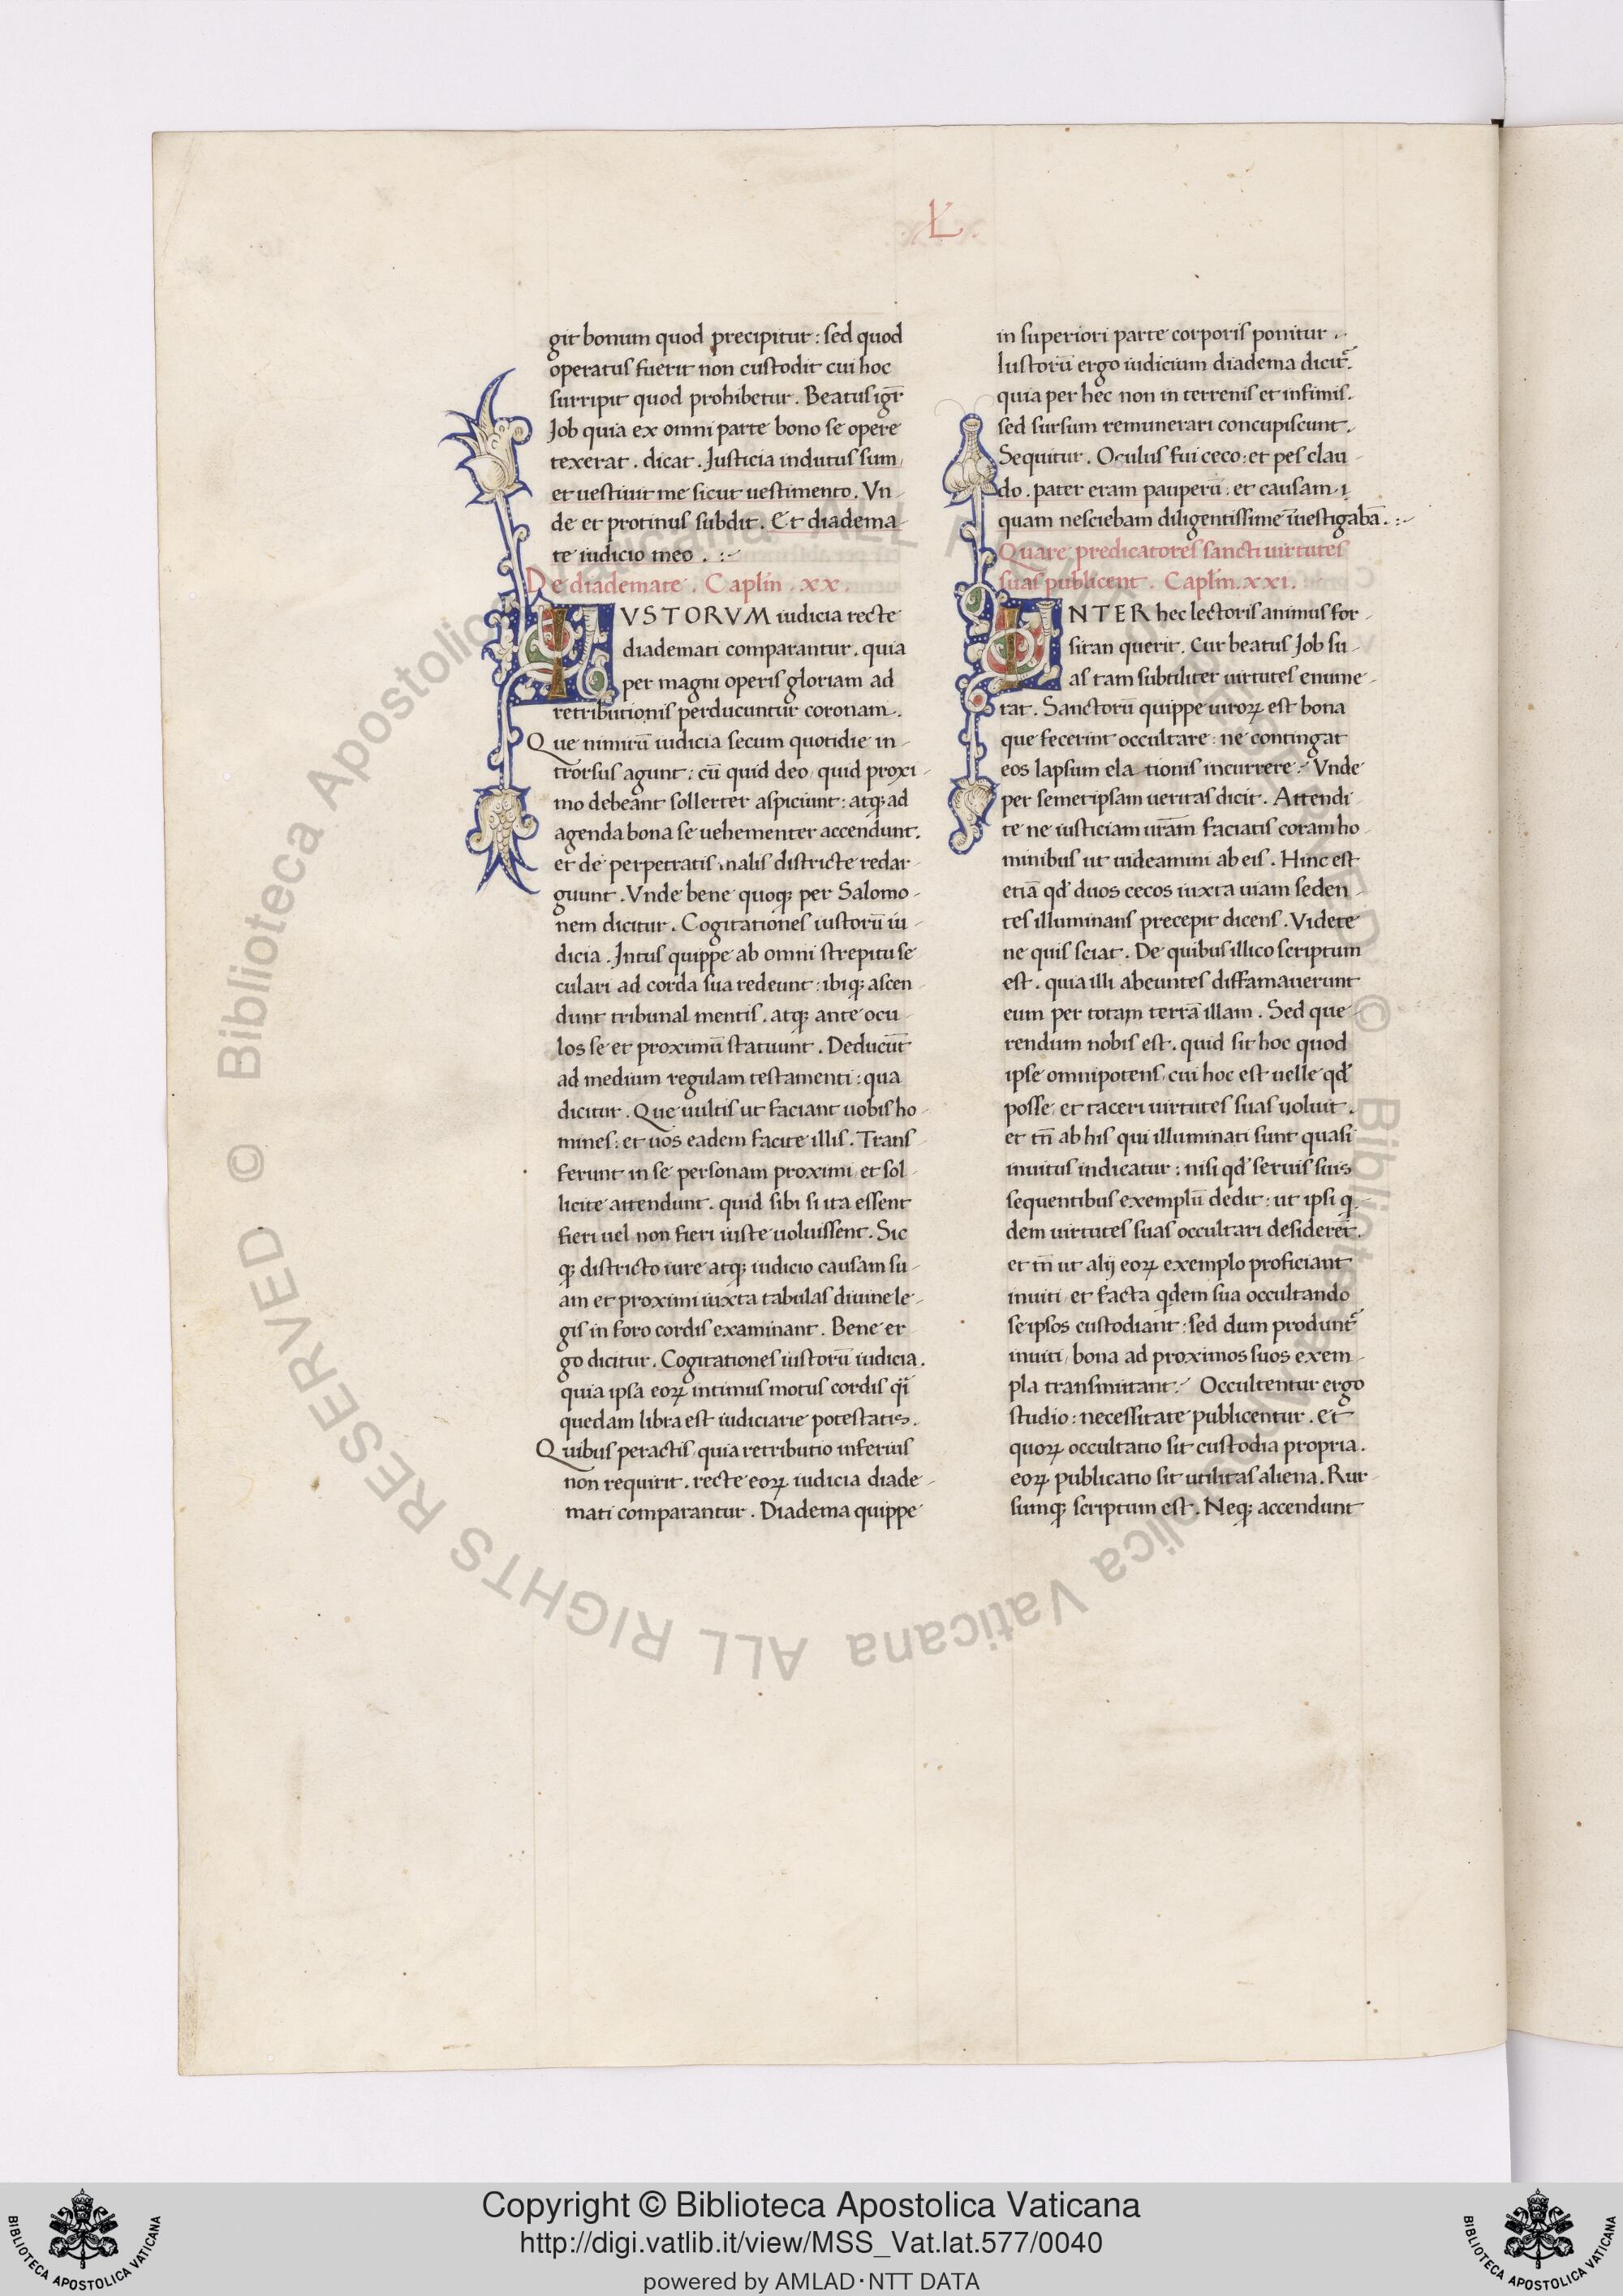 .Ł.
git bonum quod precipitur : sed quod
operatus fuerit non custodit cui hoc
surripit quod prohibetur . Beatus igr̄
Job quia ex omni parte bono se opere
texerat . dicat . Justicia indutus sum,
et uestiuit me sicut uestimento. Vn-
de et protinus subdit . Et diadema-
te iudicio meo . :-
De diademate . Caplm̄ . xx .
IVSTORVM iudicia recte
diademati comparantur . quia
per magni operis gloriam ad
retributionis perducuntur coronam .
Que nimirū iudicia secum quotidie in-
trorsus agunt : cū quid deo, quid proxi-
mo debeant sollerter aspiciunt : atq; ad
agenda bona se uehementer accendunt.
et de perpetratis malis districte redar-
guunt . Vnde bene quoq; per Salomo-
nem dicitur . Cogitationes iustorū iu-
dicia . Intus quippe ab omni strepitu se
culari ad corda sua redeunt : ibiq; ascen-
dunt tribunal mentis . atq; ante ocu-
los se et proximū statuunt . Deducūt
ad medium regulam testamenti : qua
dicitur . Que uultis ut faciant uobis ho-
mines : et uos eadem facite illis . Trans-
ferunt in se personam proximi, et sol-
licite attendunt . quid sibi si ita essent
fieri uel non fieri iuste uoluissent . Sic
q; districto iure atq; iudicio causam su-
am et proximi iuxta tabulas diuine le-
gis in foro cordis examinant . Bene er-
go dicitur . Cogitationes iustorū iudicia .
quia ipsa eoꝝ intimus motus cordis q̄i
quedam libra est iudiciarie potestatis .
Quibus peractis, quia retributio inferius
non requirit . recte eoꝝ iudicia diade-
mati comparantur . Diadema quippe
in superiori parte corporis ponitur .
Iustorū ergo iudicium diadema dicit̃ .
quia per hec non in terrenis et infimis .
sed sursum remunerari concupiscunt .
Sequitur . Oculus fui ceco : et pes clau-
do . pater eram pauperū : et causam, ī
quam nesciebam diligentissime īuestigabā . :-
Quare predicatores sancti uirtutes
suas publicent . Caplm̄ . xxi .
INTER hec lectoris animus for-
sitan querit . Cur beatus Job su-
as tam subtiliter uirtutes enume-
rat . Sanctorū quippe uiroꝝ est bona
que fecerint occultare : ne contingat
eos lapsum ela-tionis incurrere :- Vnde
per semetipsam ueritas dicit . Attendi-
te ne iusticiam uram̄ faciatis coram ho-
minibus ut uideamini ab eis . Hinc est
etiā qd̄ duos cecos iuxta uiam seden-
tes illuminans precepit dicens . Videte
ne quis sciat . De quibus illico scriptum
est . quia illi abeuntes diffamauerunt
eum per totam terrā illam . Sed que-
rendum nobis est . quid sit hoc quod
ipse omnipotens, cui hoc est uelle qd̄
posse, et taceri uirtutes suas uoluit .
et tn̄ ab his qui illuminati sunt quasi
inuitus indicatur : nisi qd̄ seruis suis
sequentibus exemplū dedit : ut ipsi q-
dem uirtutes suas occultari desiderēt .
et tn̄ ut alij eoꝝ exemplo proficiant
inuiti, et facta qdem sua occultando
seipsos custodiant : sed dum produnt̃
inuiti, bona ad proximos suos exem-
pla transmittant :- Occultentur ergo
studio : necessitate publicentur . Et
quoꝝ occultatio sit custodia propria .
eoꝝ publicatio sit utilitas aliena . Rur-
sumq; scriptum est . Neq; accendunt
© Biblioteca Apostolica Vaticana ALL RIGHTS RESERVED © Biblioteca Apostolica Vaticana ALL RIGHTS RESERVED
BIBLIOTECA APOSTOLICA VATICANA
Copyright © Biblioteca Apostolica Vaticana
http://digi.vatlib.it/view/MSS_Vat.lat.577/0040
powered by AMLAD·NTT DATA
BIBLIOTECA APOSTOLICA VATICANA